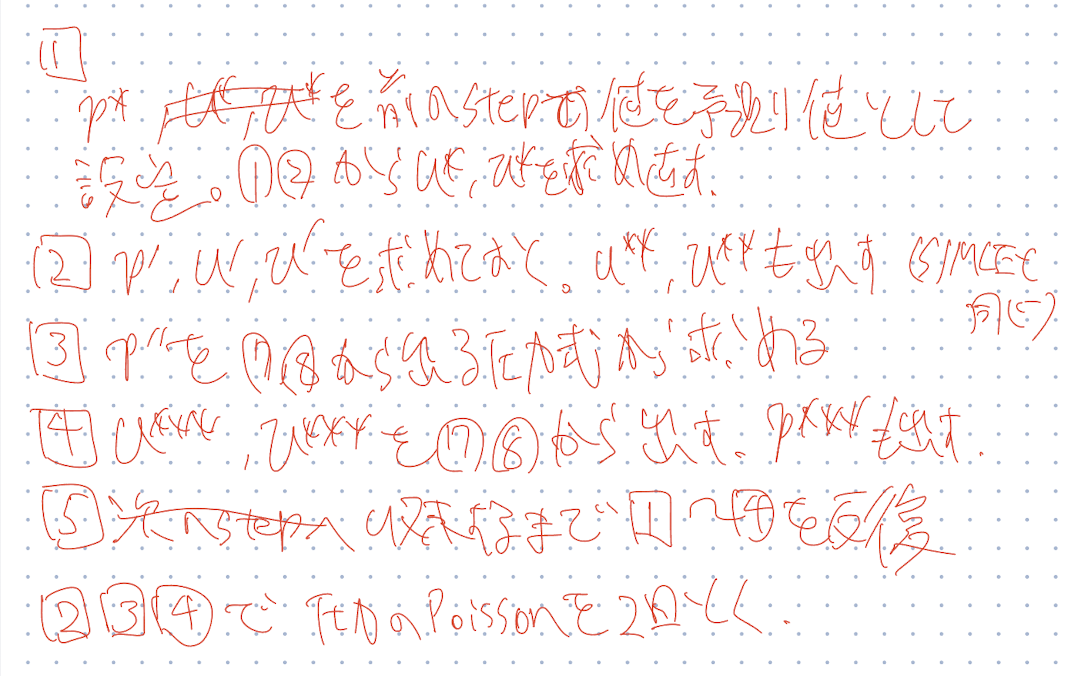 1
p* を前のstepの値を予測値として
設定。①②からu*, v*を求め直す.
2 p', u', v'を求めておく。u**, v**も出す (SIMPLEと
同じ)
3 p''を⑦⑧から出る圧力式から求める
4 u***, v***を⑦⑧から出す。p***も出す.
5 次のstepへ 収束するまで1〜4を反復
2 3 4 で 圧力のPoissonを2回とく.